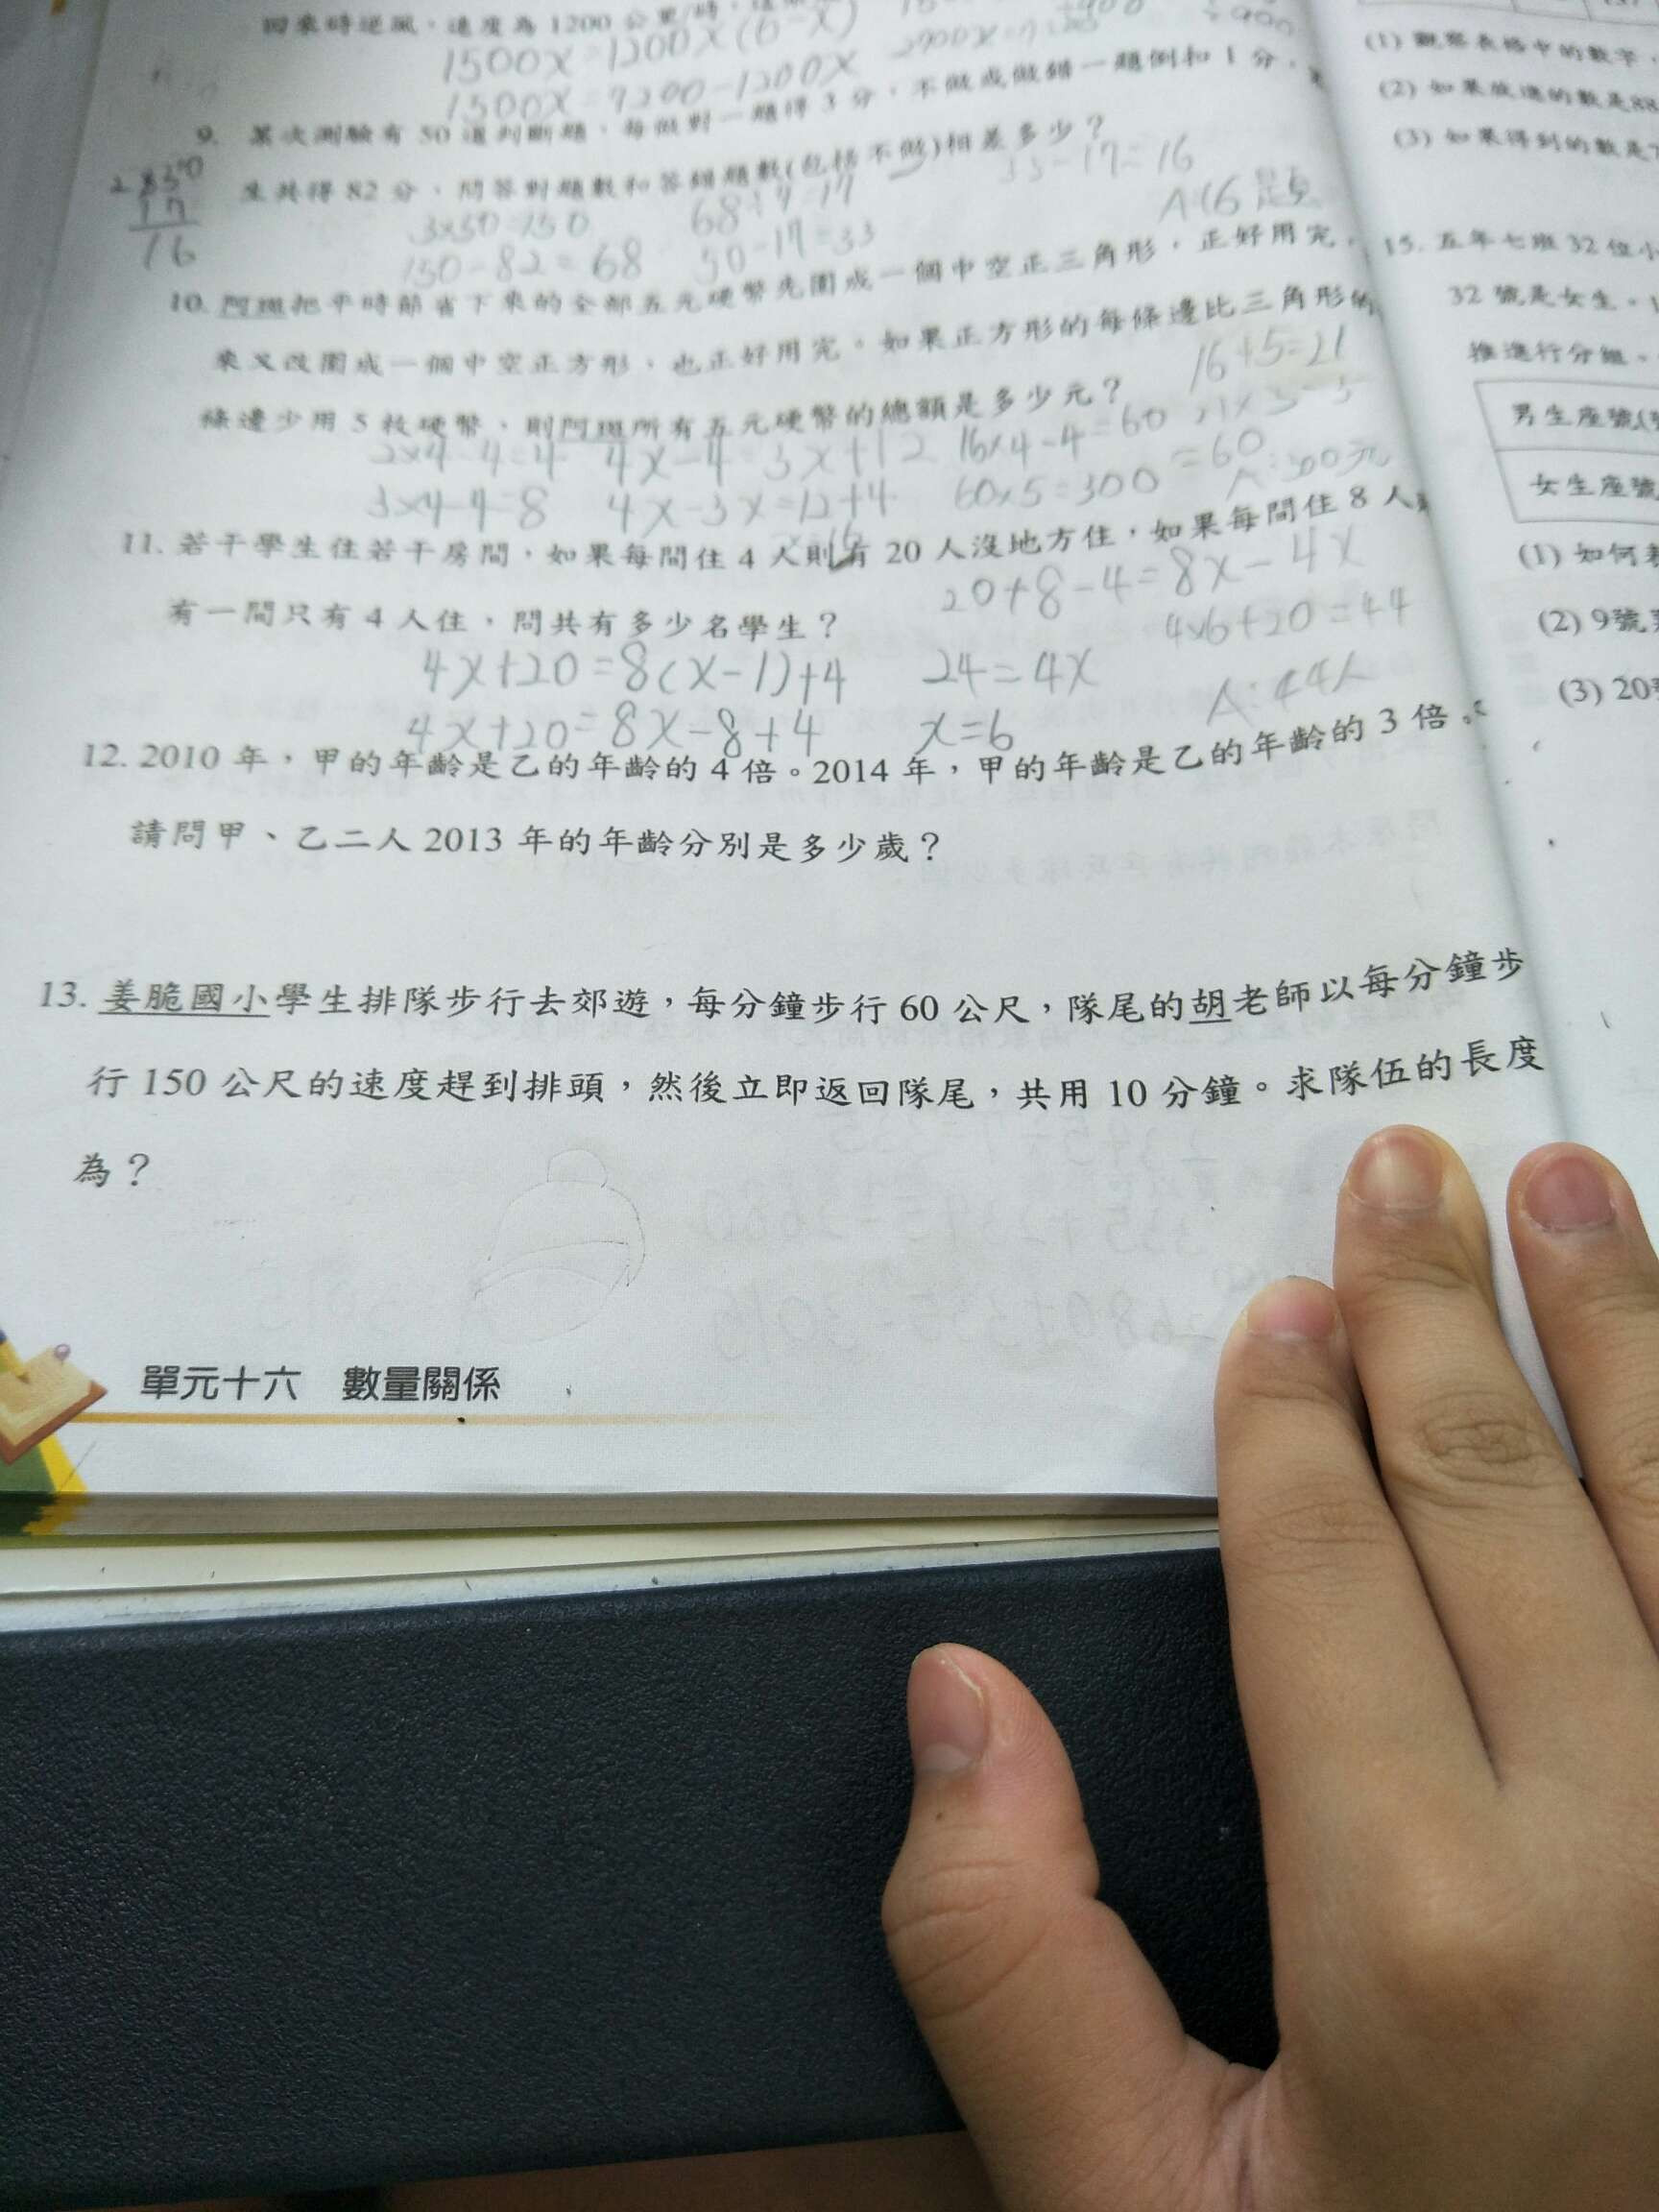 回來時逆風，速度為1200公里/時，
1500X=1200X(6-X)
1500X=7200-1200X
9. 某次測驗有50道判斷題，每做對一題得3分，不做或做錯一題倒扣1分，
生共得82分，問答對題數和答錯題數(包括不做)相差多少？
33-17=16
3×50=150
68÷4=17
A:16題
150-82=68
50-17=33
17
16
10. 阿翅把平時節省下來的全部五元硬幣先圍成一個中空正三角形，正好用完，
來又改圍成一個中空正方形，也正好用完。如果正方形的每條邊比三角形的
16+5=21
條邊少用5枚硬幣，則阿翅所有五元硬幣的總額是多少元？
2×4-4=4 4X-4=3X+12 16×4-4=60 21×3-3
=60
3×4-4=8 4X-3X=12+4 60×5=300
A:300元
x=16
11. 若干學生住若干房間，如果每間住4人則有20人沒地方住，如果每間住8人
有一間只有4人住，問共有多少名學生？
20+8-4=8X-4X
4×6+20=44
4X+20=8(X-1)+4 24=4X
A:44人
4X+20=8X-8+4 X=6
12. 2010年，甲的年齡是乙的年齡的4倍。2014年，甲的年齡是乙的年齡的3倍。
請問甲、乙二人2013年的年齡分別是多少歲？
13. 姜脆國小學生排隊步行去郊遊，每分鐘步行60公尺，隊尾的胡老師以每分鐘步
行150公尺的速度趕到排頭，然後立即返回隊尾，共用10分鐘。求隊伍的長度
為？
單元十六 數量關係
(1) 觀察表格中的數字，
(2) 如果放進的數是88
(3) 如果得到的數是
15. 五年七班32位小
32號是女生。
推進行分組，
男生座號
女生座號
(1) 如何
(2) 9號
(3) 20